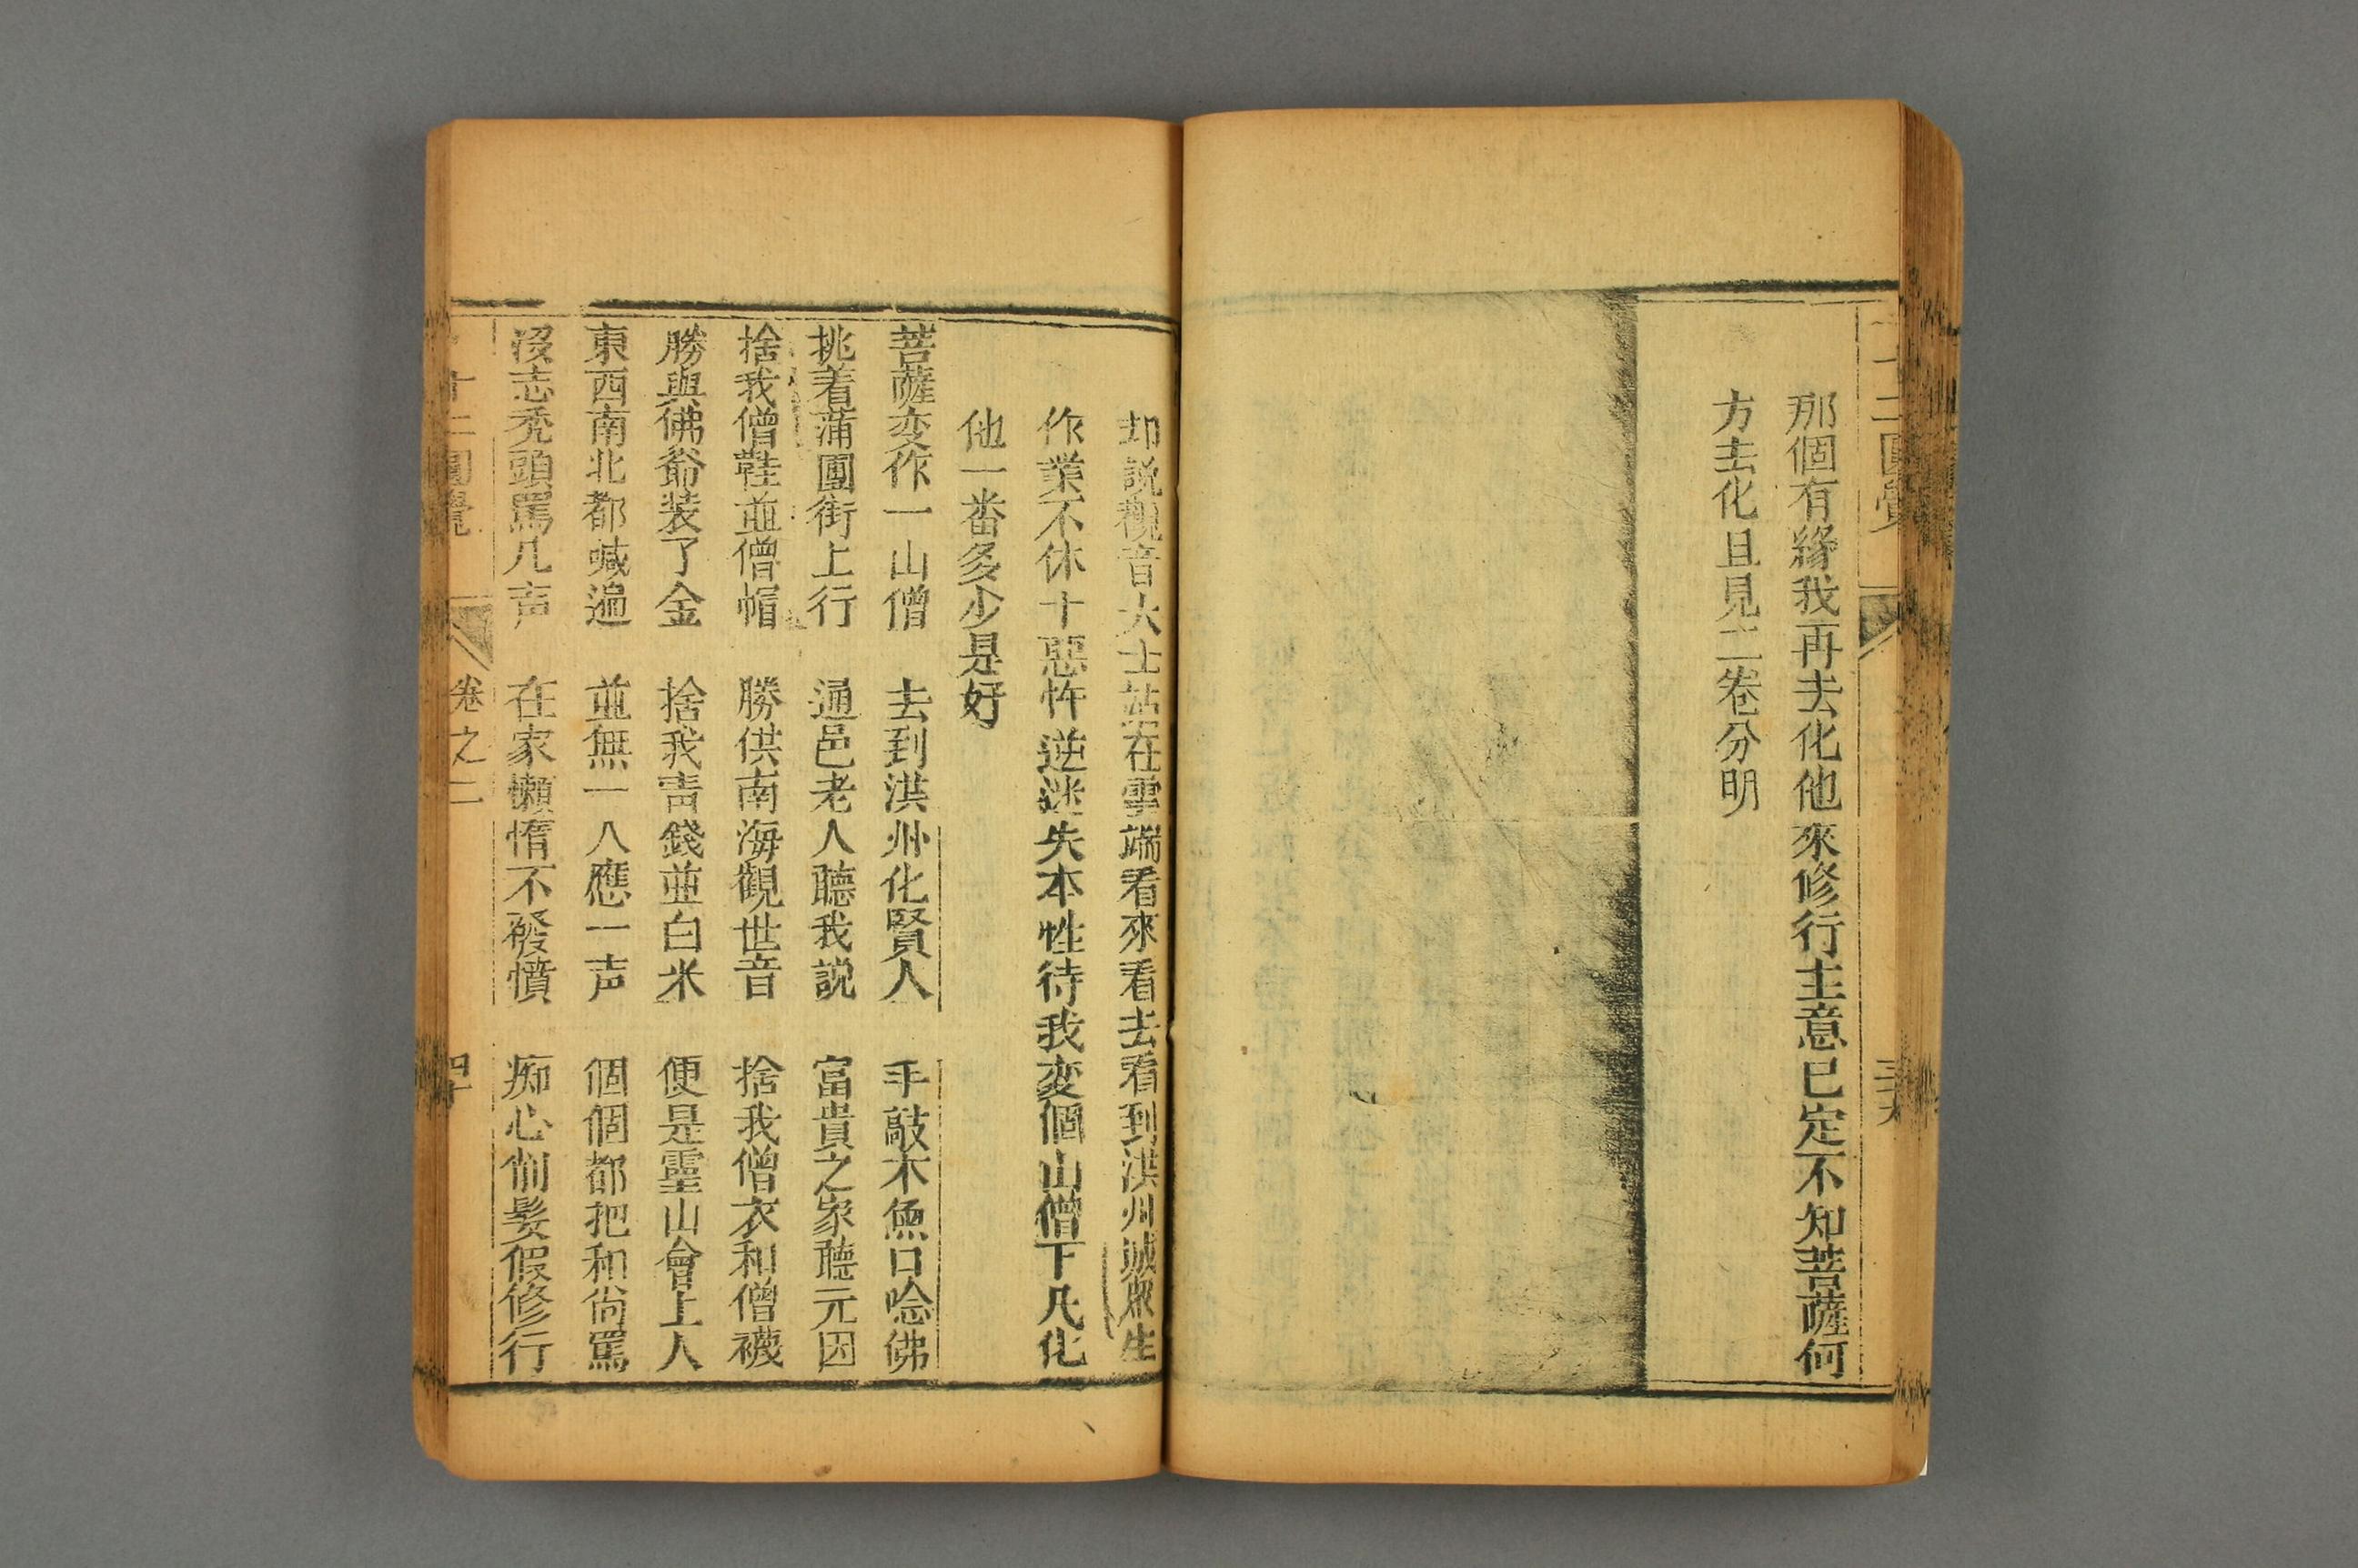 十二圓覺
那個有緣我再去化他來修行主意已定不知菩薩何
方去化且見二卷分明
却説觀音大士站在雲端看來看去看到洪州城衆生
作業不休十惡忤逆迷失本性待我変個山僧下凡化
他一番多少是好
菩薩変作一山僧 去到洪州化賢人 手敲木魚口唸佛
挑着蒲團街上行 通邑老人聽我説 富貴之家聽元因
捨我僧鞋並僧帽 勝供南海觀世音 捨我僧衣和僧襪
勝與佛爺装了金 捨我青錢並白米 便是靈山會上人
東西南北都喊遍 並無一人應一声 個個都把和尙罵
沒志秃頭罵几声 在家懶惰不發憤 痴心削髮假修行
十二圓覺 卷之二 四十